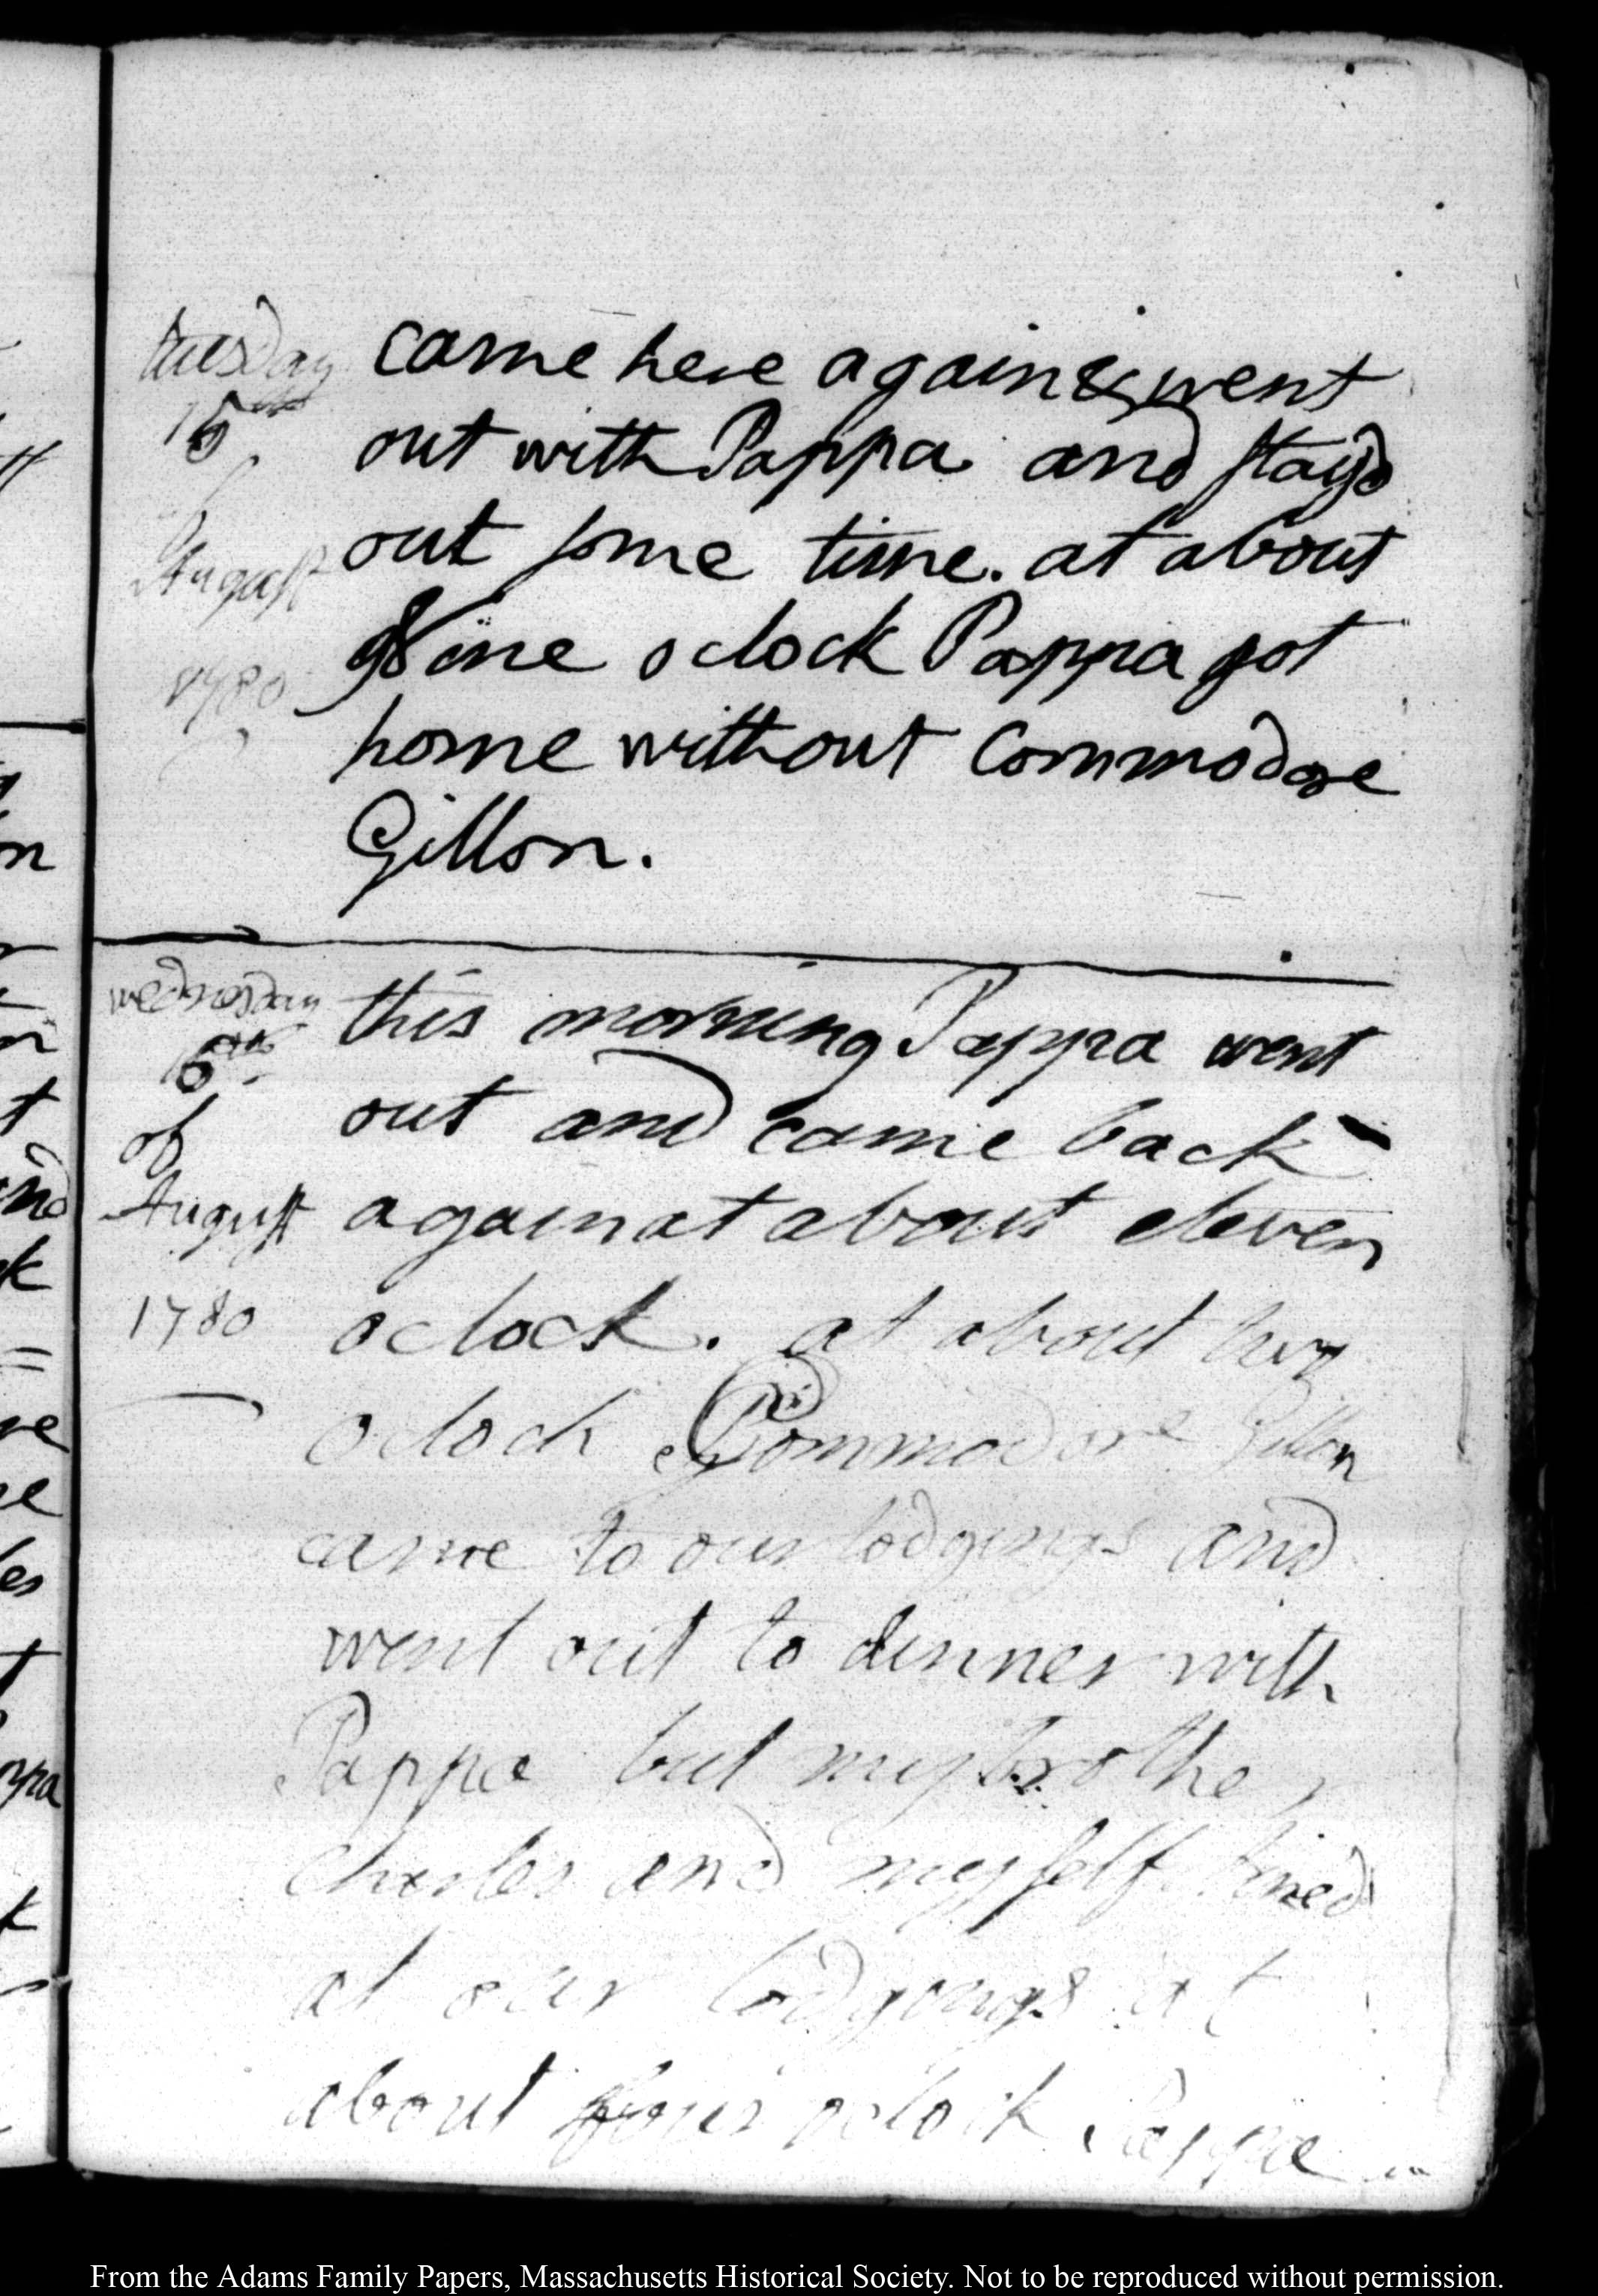 tuesday
15th
August
1780
came here again & went
out with Pappa and stay'd
out some time. at about
nine o clock Pappa got
home without Commodore
Gillon.
wednesday
16th
of
August
1780
this morning Pappa went
out and came back
again at about eleven
o clock. at about two
o clock Commodore Gillon
came to our lodgings and
went out to dinner with
Pappa but my brother
Charles and myself dined
at our lodgings at
about four o clock Pappa
From the Adams Family Papers, Massachusetts Historical Society. Not to be reproduced without permission.